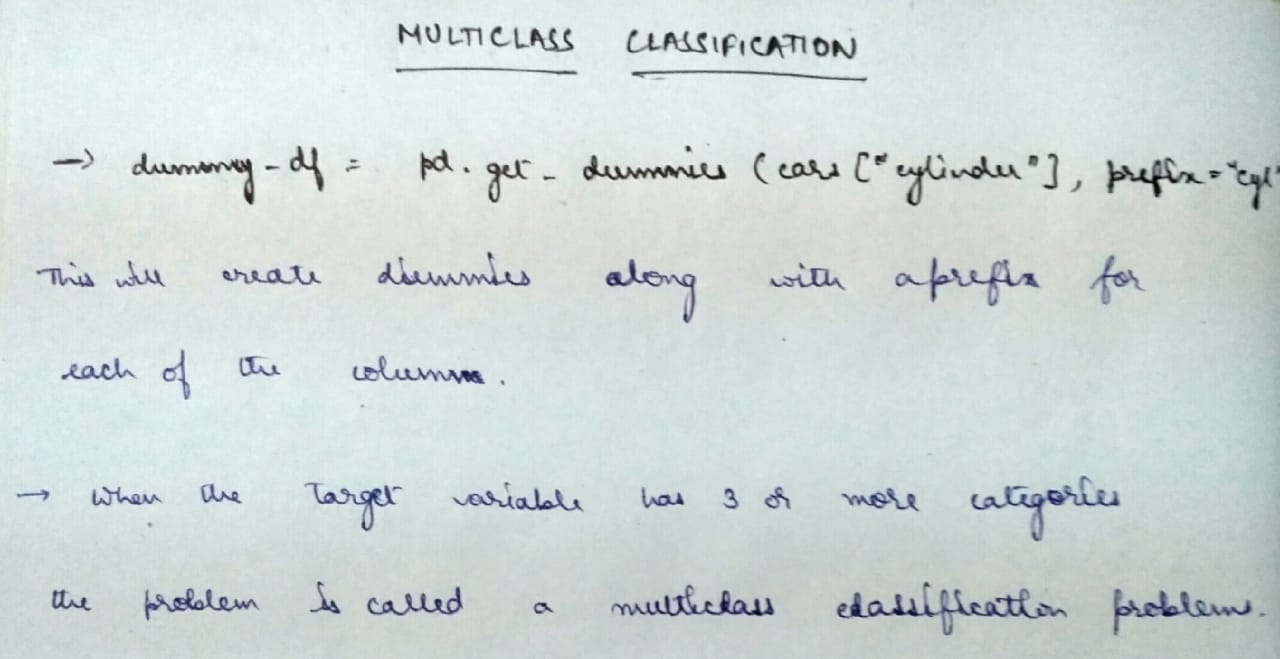 MULTICLASS CLASSIFICATION
→ dummy-df = pd.get_dummies (cars ["cylinder"], prefix="cyl"
This will create dummies along with a prefix for
each of the columns.
→ When the Target variable has 3 or more categories
the problem is called a multiclass classification problem.